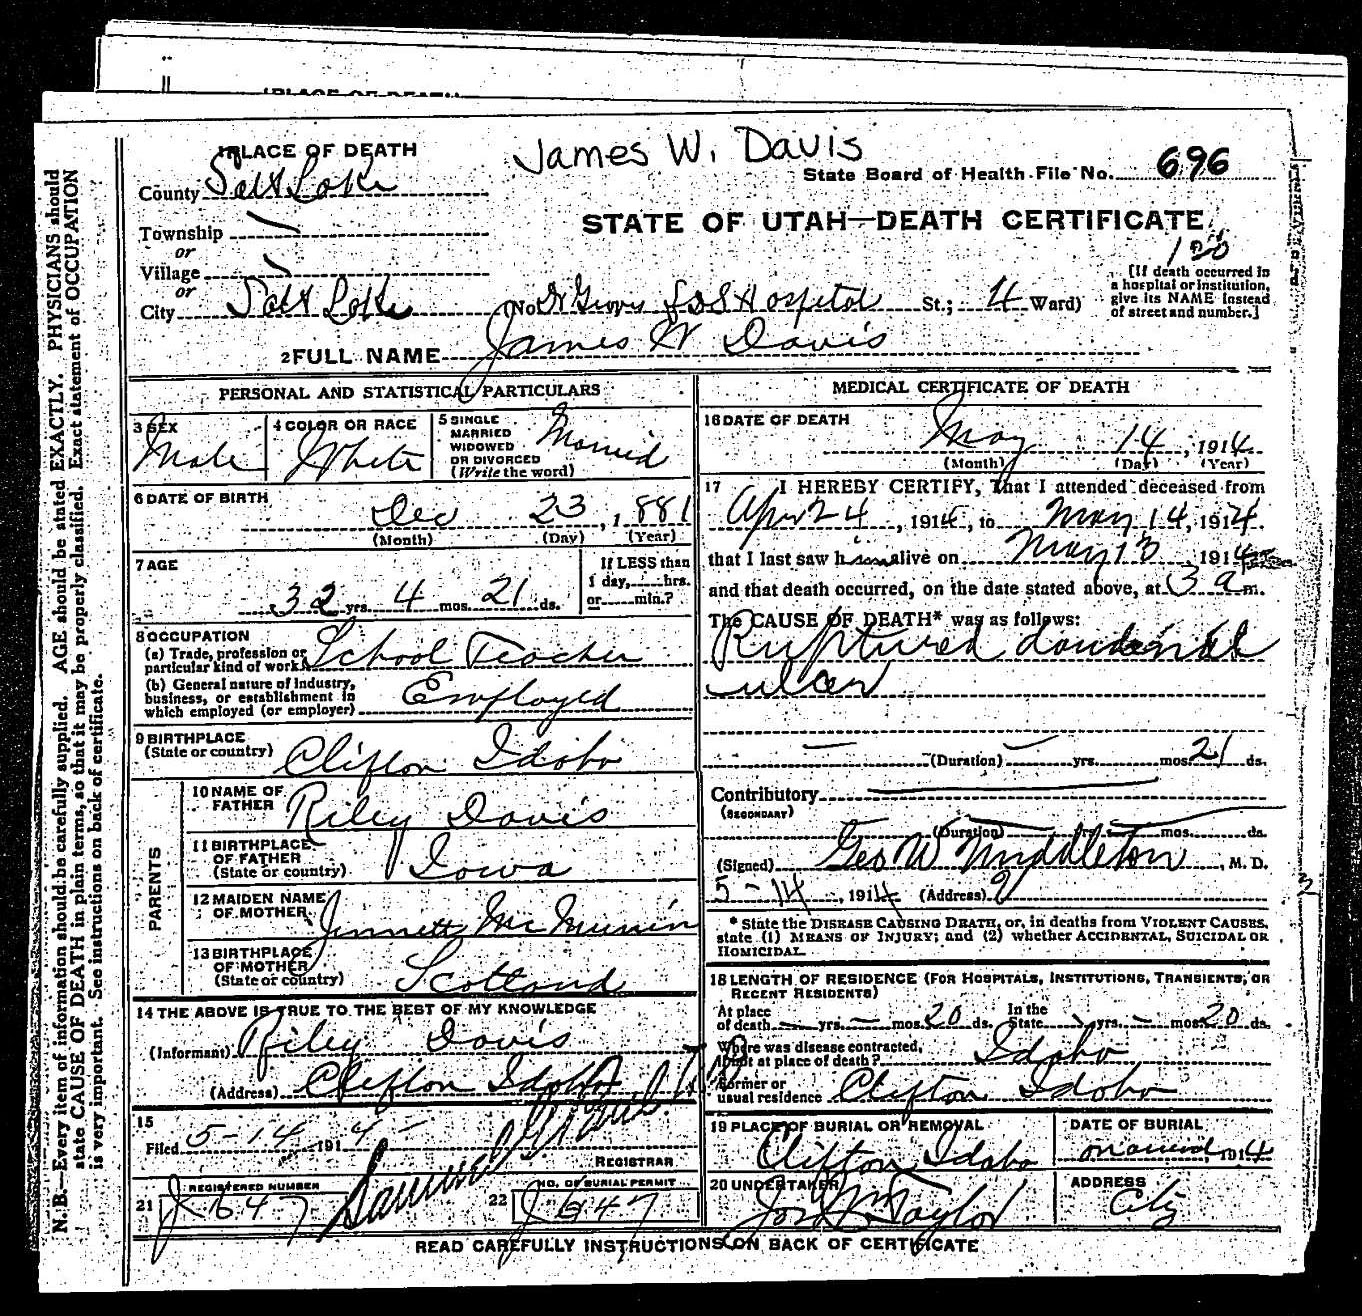 PLACE OF DEATH
James W. Davis
State Board of Health File No. 696
County Salt Lake
STATE OF UTAH—DEATH CERTIFICATE
Township
or
Village
or
City Salt Lake (No Dr Groves L D S Hospital St.; 4 Ward)
[If death occurred in
a hospital or institution,
give its NAME instead
of street and number.]
2 FULL NAME James W Davis
PERSONAL AND STATISTICAL PARTICULARS
3 SEX
Male
4 COLOR OR RACE
White
5 SINGLE
MARRIED
WIDOWED
OR DIVORCED
(Write the word)
Married
6 DATE OF BIRTH
Dec 23, 1881
(Month) (Day) (Year)
7 AGE
32 yrs. 4 mos. 21 ds.
If LESS than
1 day, hrs.
or min.?
8 OCCUPATION
(a) Trade, profession or
particular kind of work School Teacher
(b) General nature of industry,
business, or establishment in
which employed (or employer) Employed
9 BIRTHPLACE
(State or country) Clifton Idaho
PARENTS
10 NAME OF
FATHER Riley Davis
11 BIRTHPLACE
OF FATHER
(State or country) Iowa
12 MAIDEN NAME
OF MOTHER Jennett
13 BIRTHPLACE
OF MOTHER
(State or country) Scotland
14 THE ABOVE IS TRUE TO THE BEST OF MY KNOWLEDGE
(Informant) Riley Davis
(Address) Clifton Idaho
15
Filed 5-14 1914
REGISTRAR
21 REGISTERED NUMBER
J 647
22 NO. OF BURIAL PERMIT
J 647
MEDICAL CERTIFICATE OF DEATH
16 DATE OF DEATH
May 14, 1914
(Month) (Day) (Year)
17 I HEREBY CERTIFY, That I attended deceased from
Apr 24, 1914, to May 14, 1914.
that I last saw him alive on May 13 1914
and that death occurred, on the date stated above, at 3 a m.
The CAUSE OF DEATH* was as follows:
Ruptured doudenal
ulcer
(Duration) yrs. mos. 21 ds.
Contributory
(SECONDARY)
(Duration) yrs. mos. ds.
(Signed) Geo W Middleton, M. D.
5-14, 1914 (Address)
* State the DISEASE CAUSING DEATH, or, in deaths from VIOLENT CAUSES,
state (1) MEANS OF INJURY; and (2) whether ACCIDENTAL, SUICIDAL OR
HOMICIDAL.
18 LENGTH OF RESIDENCE (FOR HOSPITALS, INSTITUTIONS, TRANSIENTS, OR
RECENT RESIDENTS)
At place
of death yrs. mos. 20 ds.
In the
State yrs. mos. 20 ds.
Where was disease contracted,
if not at place of death? Idaho
Former or
usual residence Clifton Idaho
19 PLACE OF BURIAL OR REMOVAL
Clifton Idaho
DATE OF BURIAL
1914
20 UNDERTAKER
Jos Wm Taylor
ADDRESS
City
READ CAREFULLY INSTRUCTIONS ON BACK OF CERTIFICATE
N. B.—Every item of information should be carefully supplied. AGE should be stated EXACTLY. PHYSICIANS should
state CAUSE OF DEATH in plain terms, so that it may be properly classified. Exact statement of OCCUPATION
is very important. See instructions on back of certificate.